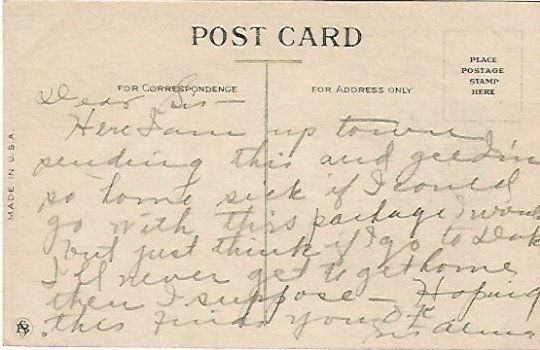 POST CARD
FOR CORRESPONDENCE
FOR ADDRESS ONLY
PLACE
POSTAGE
STAMP
HERE
MADE IN U.S.A.
Dear Sis—
Here I am up town
sending this and gee I'm
so home sick if I could
go with this package I would
but just think if I go to Dak
I'll never get to get home
then I suppose — Hoping
this finds you O.K.
Sis Alma